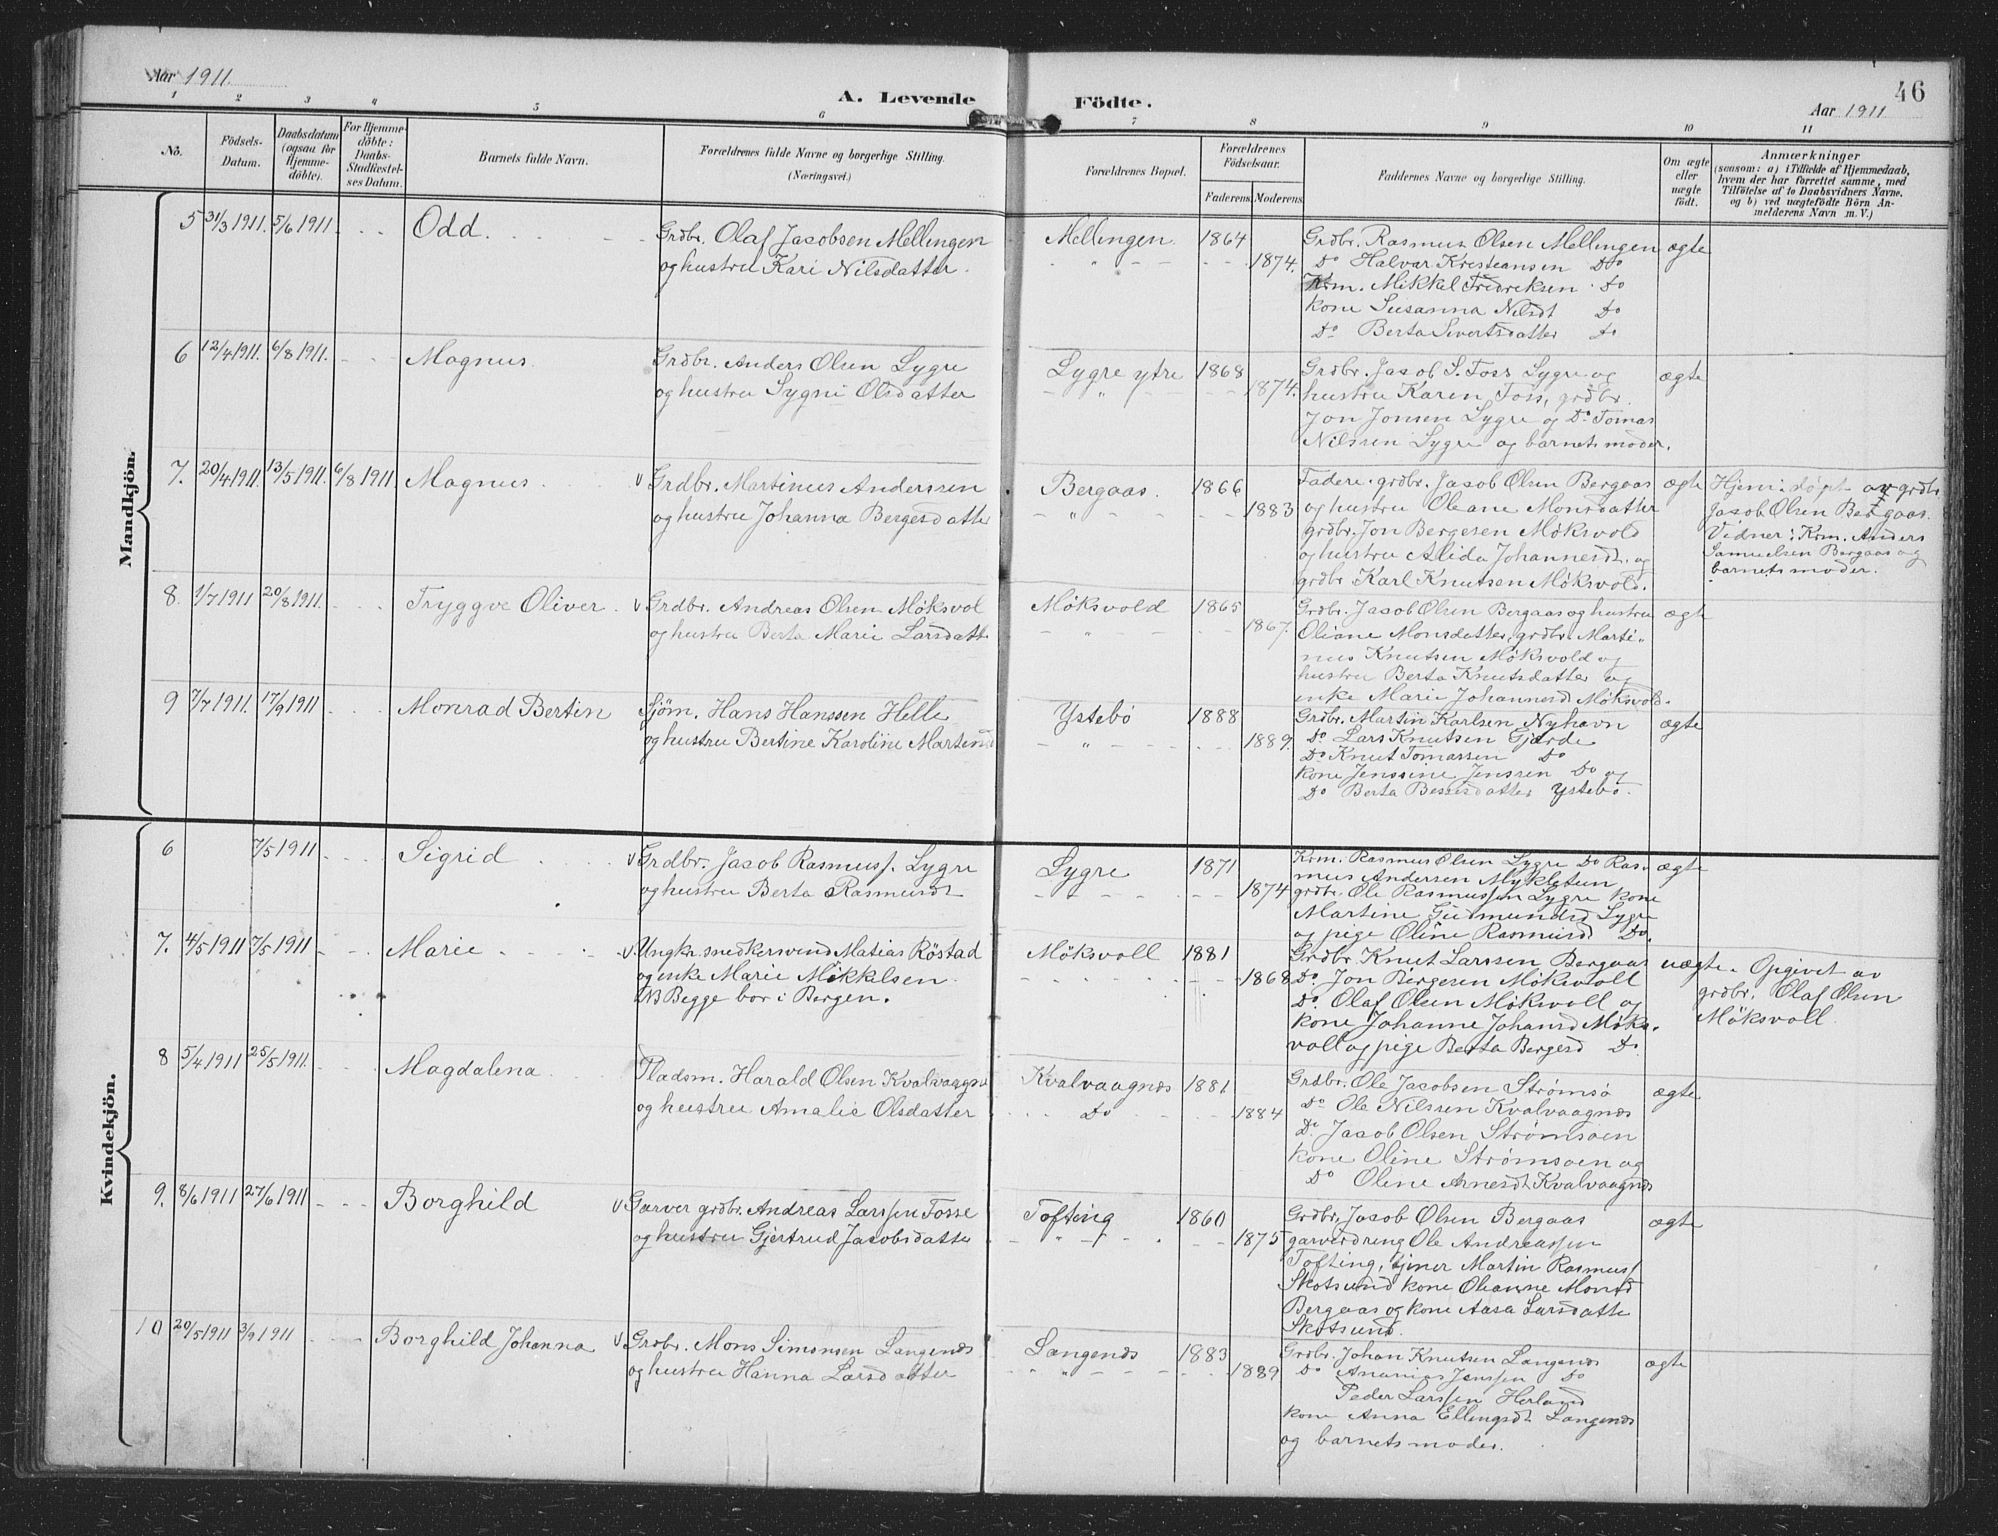 Aar 1911.
A. Levende Födte.
46
Aar 1911
1 2 3 4 5 6 7 8 9 10 11
No.
Födsels-
Datum.
Daabsdatum
(ogsaa for
Hjemme-
döbte).
For Hjemme-
döbte:
Daabs-
Stadfæstel-
ses Datum.
Barnets fulde Navn.
Forældrenes fulde Navne og borgerlige Stilling.
(Næringsvei.)
Forældrenes Bopæl.
Forældrenes
Födselsaar.
Faderens Moderens
Faddernes Navne og borgerlige Stilling.
Om ægte
eller
uægte
födt.
Anmærkninger
(saasom: a) i Tilfælde af Hjemmedaab,
hvem der har forrettet samme, med
Tilföielse af to Daabsvidners Navne,
og b) ved uægtefödte Börn An-
melderens Navn m. V.)
Mandkjön.
5 31/3 1911. 5/6 1911 Odd.
Grdbr. Olaf Jacobsen Mellingen
og hustru Kari Nilsdatter.
Mellingen 1864
1874.
Grdbr. Rasmus Olsen Mellingen
Do Halvar Kristeansen Do
Krm. Mikkel Fredriksen Do
kone Susanna Nilsdt Do
Do Berta Sivertsdatter Do
ægte
6 12/4 1911. 6/8 1911. Magnus.
Grdbr. Anders Olsen Lygre
og hustru Sygni Olsdatter
Lygre ytre 1868
1874.
Grdbr. Jacob S. Foss Lygre og
hustru Karen Foss, grdbr.
Jon Jonsen Lygre og Do Tomas
Nilssen Lygre og barnets moder.
ægte
7. 20/4 1911. 13/5 1911. 6/8 1911. Magnus.
v Grdbr. Martinus Anderssen
og hustru Johanna Bergesdatter
Bergaas. 1866
1883
Fadere: grdbr. Jacob Olsen Bergaas
og hustru Oleane Monsdatter
grdbr. Jon Bergesen Möksvold
og hustru Alida Johannesdt. og
grdbr Karl Knutsen Möksvold.
ægte
Hjem: döpt av grdbr
Jacob Olsen Bergaas.
Vidner: Krm. Anders
Samuelsen Bergaas og
barnets moder.
8. 1/7 1911 20/8 1911. Tryggve Oliver
v Grdbr. Andreas Olsen Möksvol
og hustru Berta Marie Larsdatt.
Möksvold 1865
1867.
Grdbr. Jacob Olsen Bergaas og hustru
Oliane Monsdatter, grdbr. Marti-
nus Knutsen Möksvold og
hustru Berta Knutsdatter og
enke Marie Johannesd Möksvold.
ægte
9 7/7 1911. 17/9 1911 Monrad Bertin
Sjöm. Hans Hanssen Helle
og hustru Bertine Karoline Martinsd
Ystebö 1888
1889.
Grdbr. Martin Karlsen Nyhavn
Do Lars Knutsen Gjærde
Do Knut Tomassen Do
kone Jenssine Jenssen Do og
Do Berta Bessesdatter Ystebö.
ægte
Kvindekjön.
6 7/5 1911 Sigrid
v Grdbr. Jacob Rasmuss. Lygre
og hustru Berta Rasmusdt
Lygre 1871
1874
Krm. Rasmus Olsen Lygre Do Ras-
mus Andersen Mykletun
grdbr. Ole Rasmussen Lygre kone
Martine Gudmundsd Lygre
og pige Oline Rasmusd Do.
ægte
7. 4/5 1911 7/5 1911 Marie
v. Ungkr. snedkersvend Matias Röstad
og enke Marie Mikkelsen.
NB Begge bor i Bergen.
Möksvoll 1881
1868
Grdbr. Knut Larssen Bergaas
Do. Jon Bergesen Möksvoll
Do Olaf Olsen Möksvoll og
kone Johanne Johansd Möks.
voll og pige Berta Bergesd Do.
uægte. Opgivet av
grdbr. Olaf Olsen
Möksvoll.
8 5/4 1911 25/5 1911. Magdalena
Pladsm. Harald Olsen Kvalvaagnes
og hustru Amalie Olsdatter
Kvalvaagnæs 1881
Do 1884
Grdbr. Ole Jacobsen Strömsö
Do Ole Nilssen Kvalvaagnæs
Do Jacob Olsen Strömsoen
kone Oline Strömsoen og
Do Oline Arnesdt Kvalvaagnæs
ægte
9. 8/6 1911 27/6 1911 Borghild
v Garver grdbr. Andreas Larssen Fosse
og hustru Gjertrud Jacobsdatte
Tofting 1860
1875
Grdbr. Jacob Olsen Bergaas
garverdreng Ole Andreassen
Tofting, tjener Martin Rasmuss
Skotsund kone Oleanne Monsd
Bergaas og kone Aasa Larsdatte
Skotsund.
ægte
10 20/5 1911 3/9 1911 Borghild Johanna
v. Grdbr. Mons Simonsen Langenæs
og hustru Hanna Larsdatter
Langenæs 1883
1889
Grdbr. Johan Knutsen Langenæs
Do Ananias Jenssen Do
Peder Larssen Herland
kone Anna Ellingsdt Langenæs
og barnets moder.
ægte